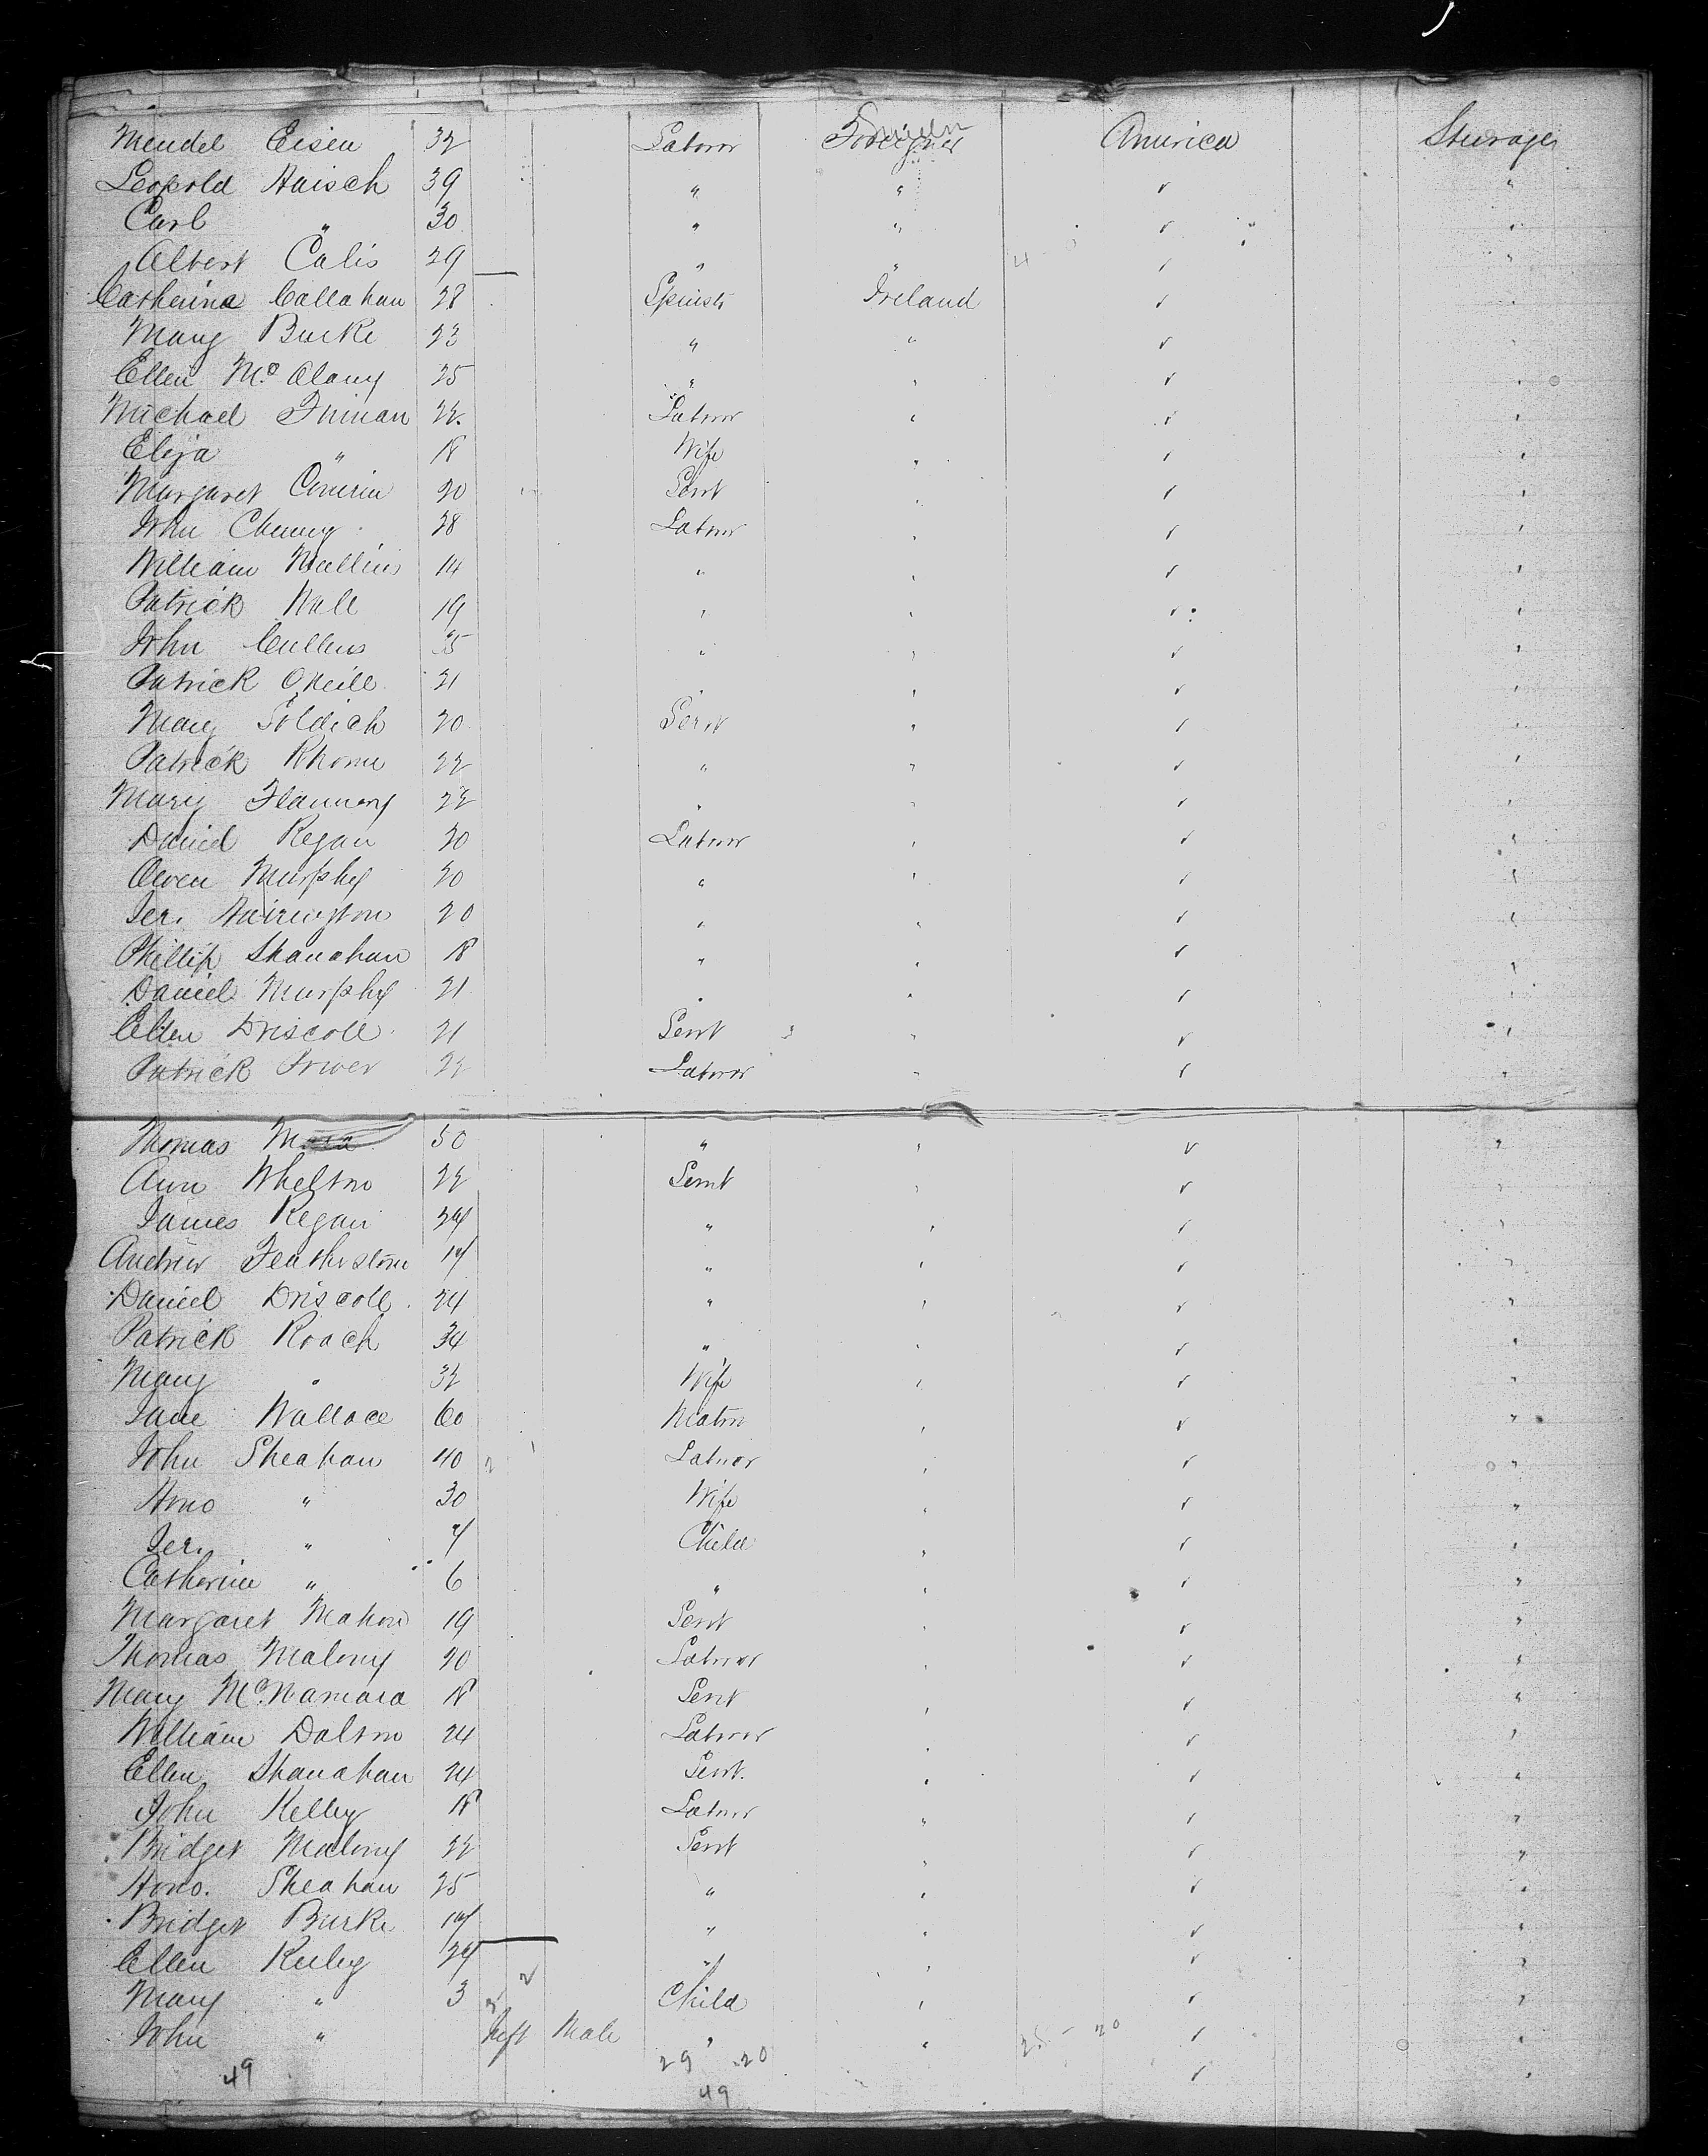 Mendel Eisen 32 Laborer Foreigner America Steerage
Leopold Haisch 39 " " " "
Carl " 30 " " " "
Albert Calis 29 " " " "
Catherine Callahan 28 Spinstr Ireland " "
Mary Burke 23 " " " "
Ellen Mc 25 " " " "
Michael 22 Laborer " " "
Eliza " 18 Wife " " "
Margaret 20 Servt " " "
John 28 Laborer " " "
William Mullins 14 " " " "
Patrick Wall 19 " " " "
John Cullens 35 " " " "
Patrick ONeill 21 " " " "
Mary 20 Servt " " "
Patrick 22 " " " "
Mary Flannery 22 " " " "
Daniel Regan 20 Laborer " " "
Owen Murphy 20 " " " "
Jer. Harrington 20 " " " "
Phillip Shanahan 18 " " " "
Daniel Murphy 21 " " " "
Ellen Driscoll 21 Servt " " "
Patrick Power 22 Laborer " " "
Thomas 50 " " " "
Ann Whelton 22 Servt " " "
James Regan 24 " " " "
Andrew Featherstone " " " "
Daniel Driscoll 24 " " " "
Patrick Roach 34 " " " "
Mary " 32 Wife " " "
Jane Wallace 60 Matrn " " "
John Sheahan 40 Laborer " " "
Hono " 30 Wife " " "
Jer. " 7 Child " " "
Catherine " 6 " " " "
Margaret Mahon 19 Servt " " "
Thomas Malony 20 Laborer " " "
Mary McNamara 18 Servt " " "
William Dalton 24 Laborer " " "
Ellen Shanahan 24 Servt. " " "
John Kelley 18 Laborer " " "
Bridget Malony 22 Servt " " "
Hono. Sheahan 25 " " " "
Bridget Burke " " " "
Ellen 24 " " " "
Mary " 3 Child " " "
John " Inft Male " " " "
29 20
49 49